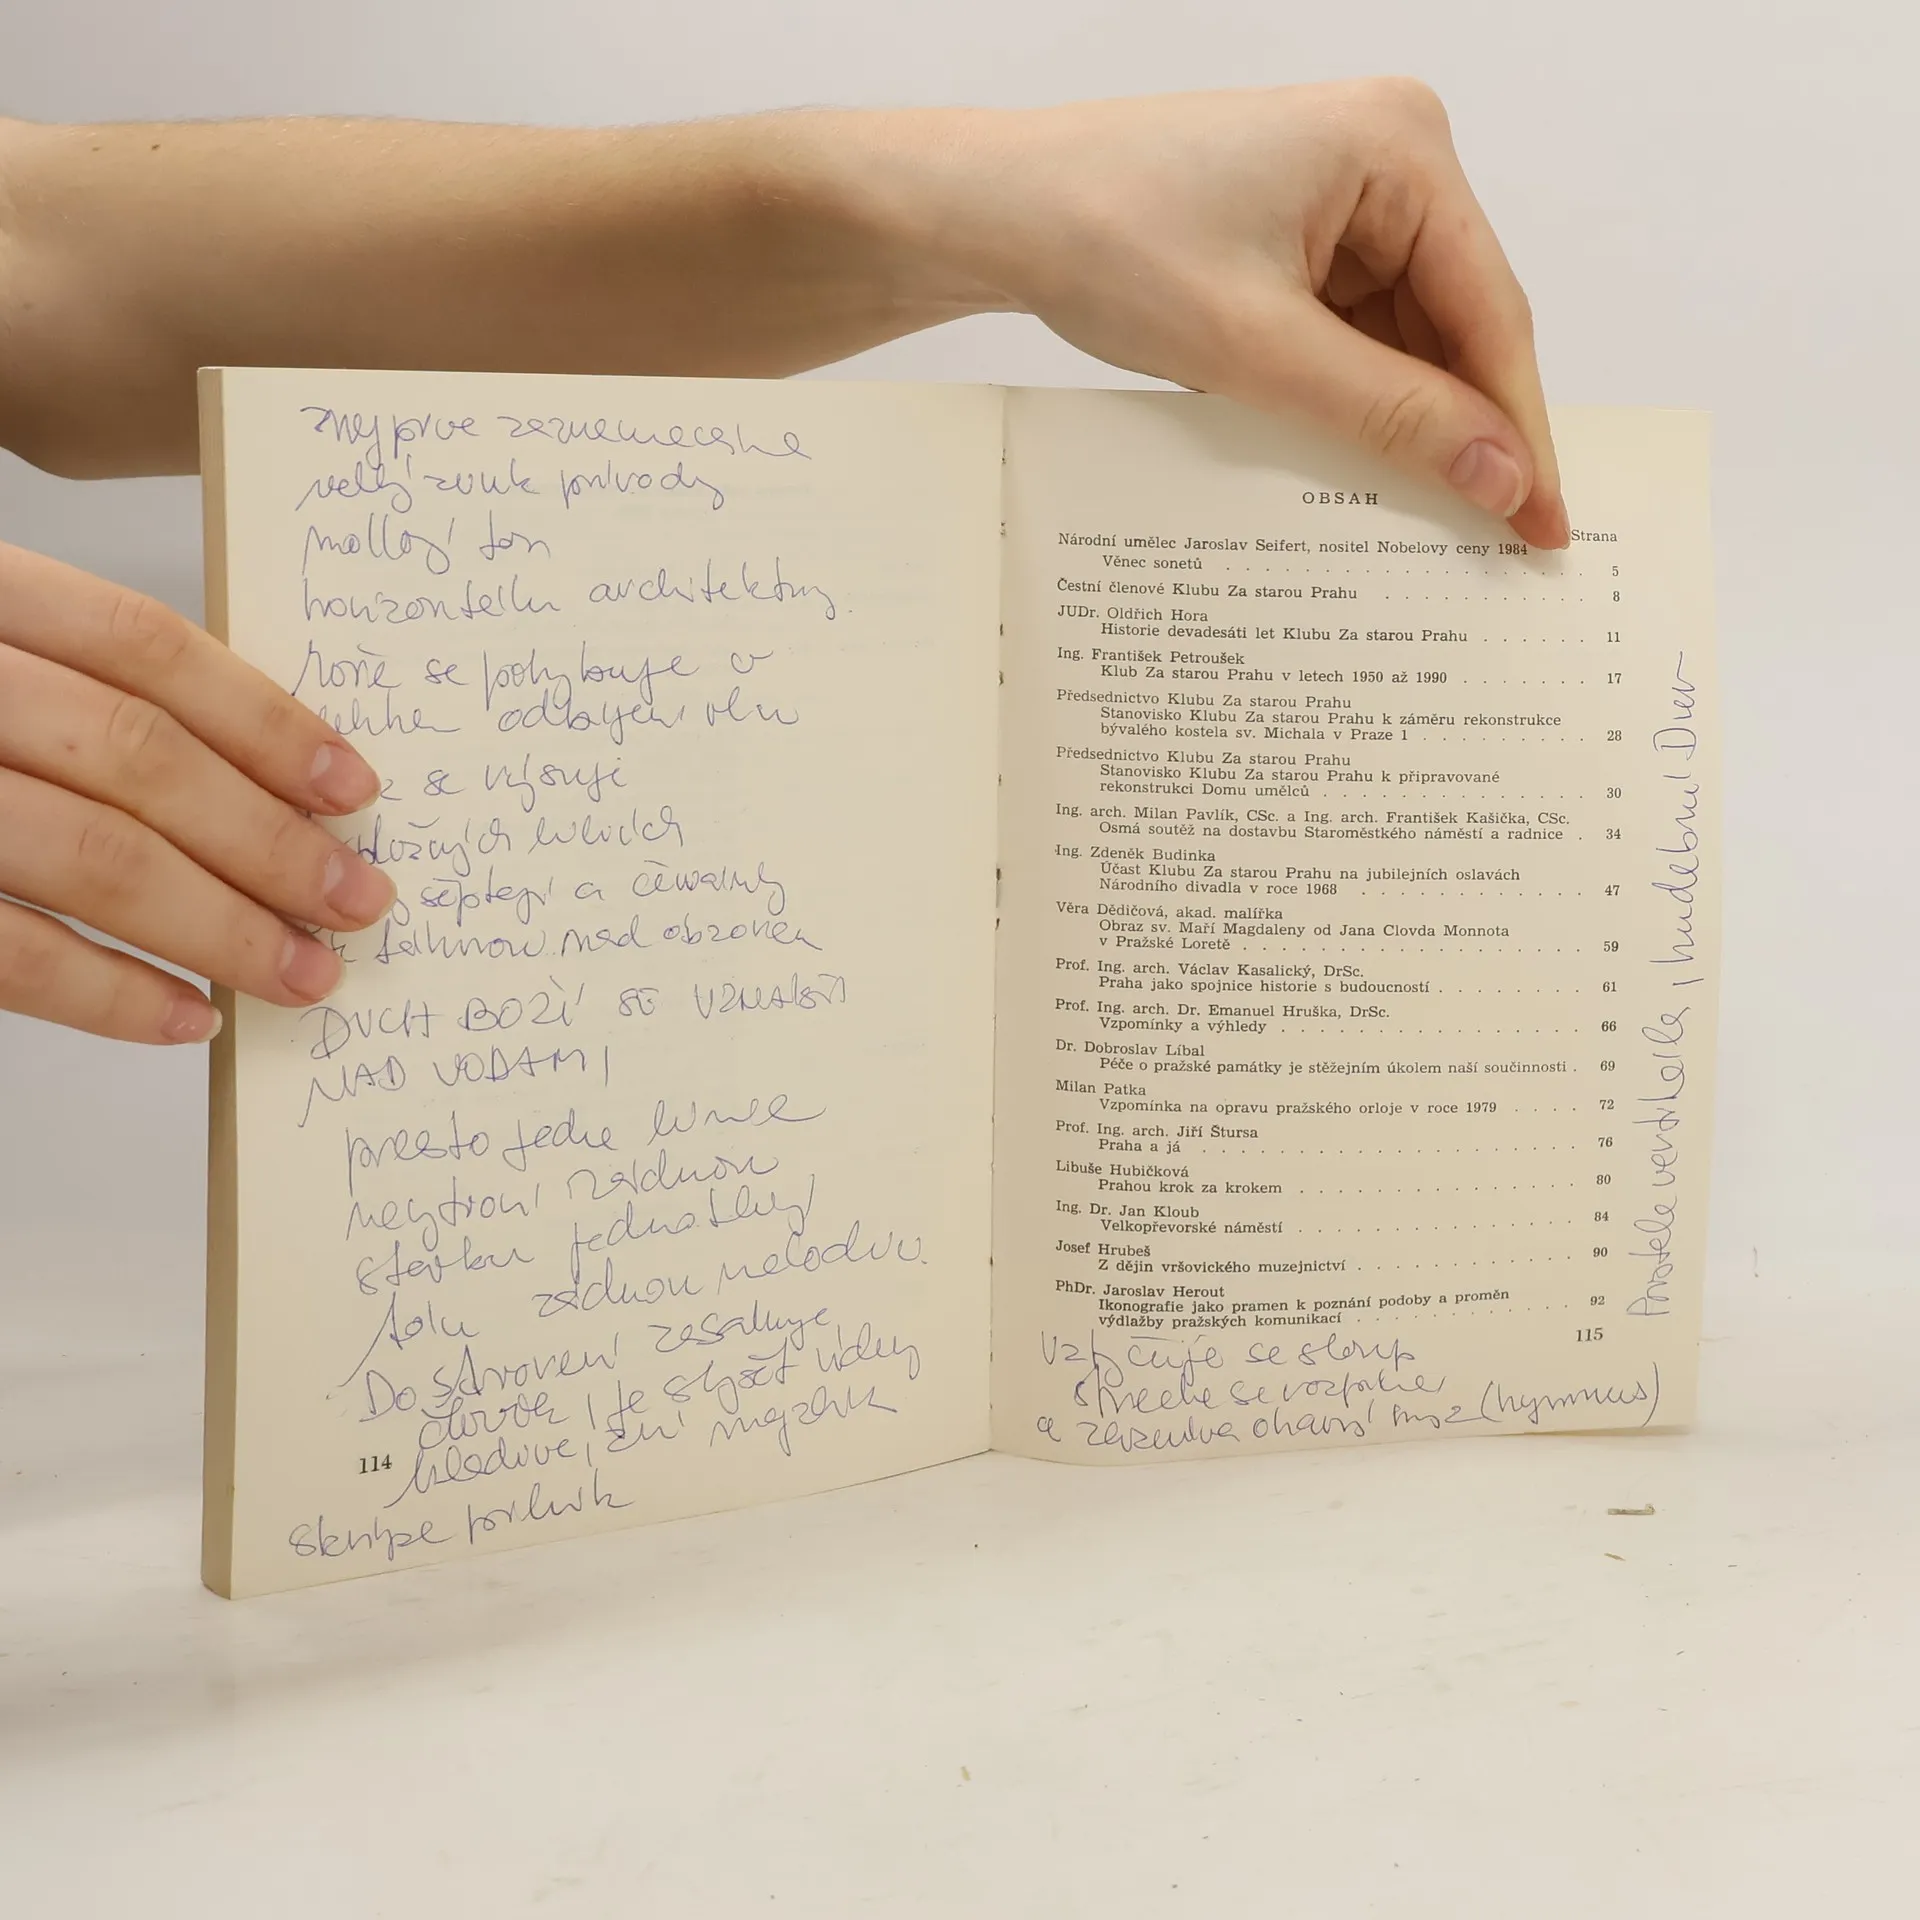 velký zvuk přírody
mollový tón
horizontelu architektury.
se pohybuje v
odbyení vln
se výsuji
a červánky
nad obzorem
DUCH BOŽÍ SE VZNÁŠÍ
NAD VODAMI
přesto jedna linee
netvoří žádnou
stavbu jednotlivý
žádnou melodii.
Do stvoření zasahuje
člověk, je slyšet údery
kladiva, zní
skřípe
114
OBSAH
Strana
Národní umělec Jaroslav Seifert, nositel Nobelovy ceny 1984
Věnec sonetů . . . . . . . . . . . . . . . . . . 5
Čestní členové Klubu Za starou Prahu . . . . . . . . . . . 8
JUDr. Oldřich Hora
Historie devadesáti let Klubu Za starou Prahu . . . . . . 11
Ing. František Petroušek
Klub Za starou Prahu v letech 1950 až 1990 . . . . . . . 17
Předsednictvo Klubu Za starou Prahu
Stanovisko Klubu Za starou Prahu k záměru rekonstrukce
bývalého kostela sv. Michala v Praze 1 . . . . . . . . . 28
Předsednictvo Klubu Za starou Prahu
Stanovisko Klubu Za starou Prahu k připravované
rekonstrukci Domu umělců . . . . . . . . . . . . . . 30
Ing. arch. Milan Pavlík, CSc. a Ing. arch. František Kašička, CSc.
Osmá soutěž na dostavbu Staroměstkého náměstí a radnice . 34
Ing. Zdeněk Budinka
Účast Klubu Za starou Prahu na jubilejních oslavách
Národního divadla v roce 1968 . . . . . . . . . . . . 47
Věra Dědičová, akad. malířka
Obraz sv. Maří Magdaleny od Jana Clovda Monnota
v Pražské Loretě . . . . . . . . . . . . . . . . . . 59
Prof. Ing. arch. Václav Kasalický, DrSc.
Praha jako spojnice historie s budoucností . . . . . . . . 61
Prof. Ing. arch. Dr. Emanuel Hruška, DrSc.
Vzpomínky a výhledy . . . . . . . . . . . . . . . . 66
Dr. Dobroslav Líbal
Péče o pražské památky je stěžejním úkolem naší součinnosti . 69
Milan Patka
Vzpomínka na opravu pražského orloje v roce 1979 . . . . 72
Prof. Ing. arch. Jiří Štursa
Praha a já . . . . . . . . . . . . . . . . . . . . 76
Libuše Hubičková
Prahou krok za krokem . . . . . . . . . . . . . . . 80
Ing. Dr. Jan Kloub
Velkopřevorské náměstí . . . . . . . . . . . . . . . 84
Josef Hrubeš
Z dějin vršovického muzejnictví . . . . . . . . . . . . 90
PhDr. Jaroslav Herout
Ikonografie jako pramen k poznání podoby a proměn
výdlažby pražských komunikací . . . . . . . . . . . . 92
115
Vztyčuje se sloup
střecha se rozpíná
a (hymnus)
hudební